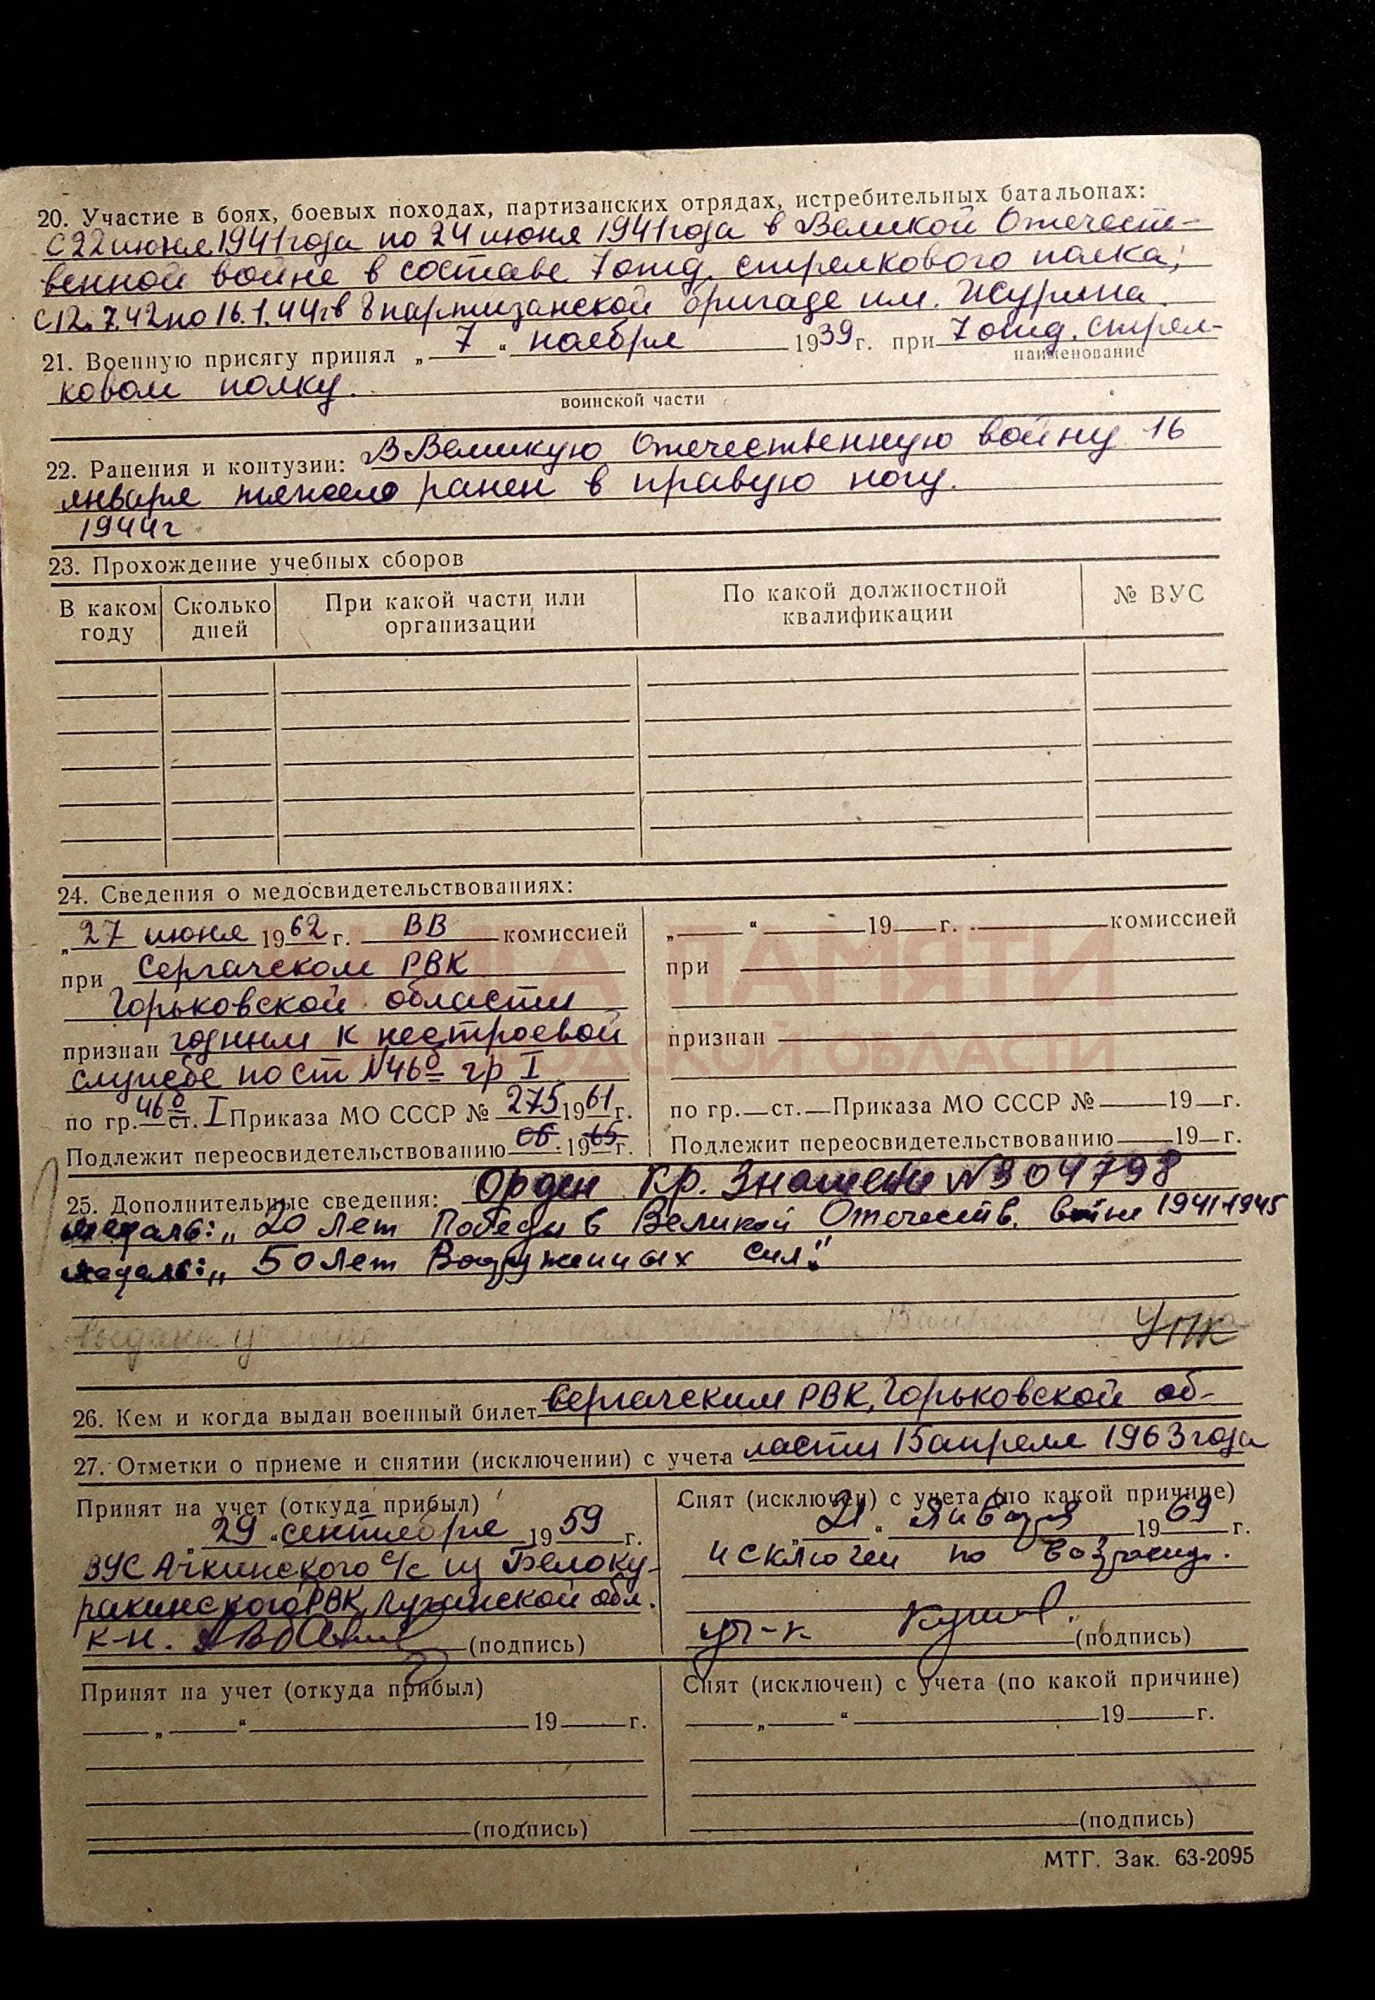 20. Участие в боях, боевых походах, партизанских отрядах, истребительных батальонах:
С 22 июня 1941 года по 24 июня 1941 года в Великой Отечест-
венной войне в составе 7 отд. стрелкового полка;
С 12.7.42 по 16.1.44г в 8 партизанской бригаде им. Журина.
21. Военную присягу принял „ 7 “ ноября 1939 г. при 7 отд. стрел-
наименование
ковом полку.
воинской части
22. Ранения и контузии: В Великую Отечественную войну 16
января тяжело ранен в правую ногу.
1944г
23. Прохождение учебных сборов
В каком году Сколько дней При какой части или организации По какой должностной квалификации № ВУС
24. Сведения о медосвидетельствованиях:
„ 27 июня 1962 г. ВВ комиссией
при Сергачском РВК
Горьковской области
признан годным к нестроевой
службе по ст №46б гр I
по гр. 46б ст. I Приказа МО СССР № 275 1961 г.
Подлежит переосвидетельствованию 06. 1965 г.
„ “ 19 г. комиссией
при
признан
по гр. ст. Приказа МО СССР № 19 г.
Подлежит переосвидетельствованию 19 г.
КНИГА ПАМЯТИ
НИЖЕГОРОДСКОЙ ОБЛАСТИ
25. Дополнительные сведения: Орден Кр. Знамени №304798
медаль: „ 20 лет Победы в Великой Отечеств. войне 1941-1945
медаль: „ 50 лет Вооруженных Сил."
26. Кем и когда выдан военный билет Сергачским РВК, Горьковской об-
27. Отметки о приеме и снятии (исключении) с учета ласти 15 апреля 1963 года
Принят на учет (откуда прибыл)
„ 29 “ сентября 1959 г.
ВУС Ачкинского с/с из Белоку-
ракинского РВК, Луганской обл.
(подпись)
Снят (исключен) с учета (по какой причине)
„ 21 “ Января 1969 г.
исключен по возрасту.
(подпись)
Принят на учет (откуда прибыл)
„ “ 19 г.
(подпись)
Снят (исключен) с учета (по какой причине)
„ “ 19 г.
(подпись)
МТГ. Зак. 63-2095